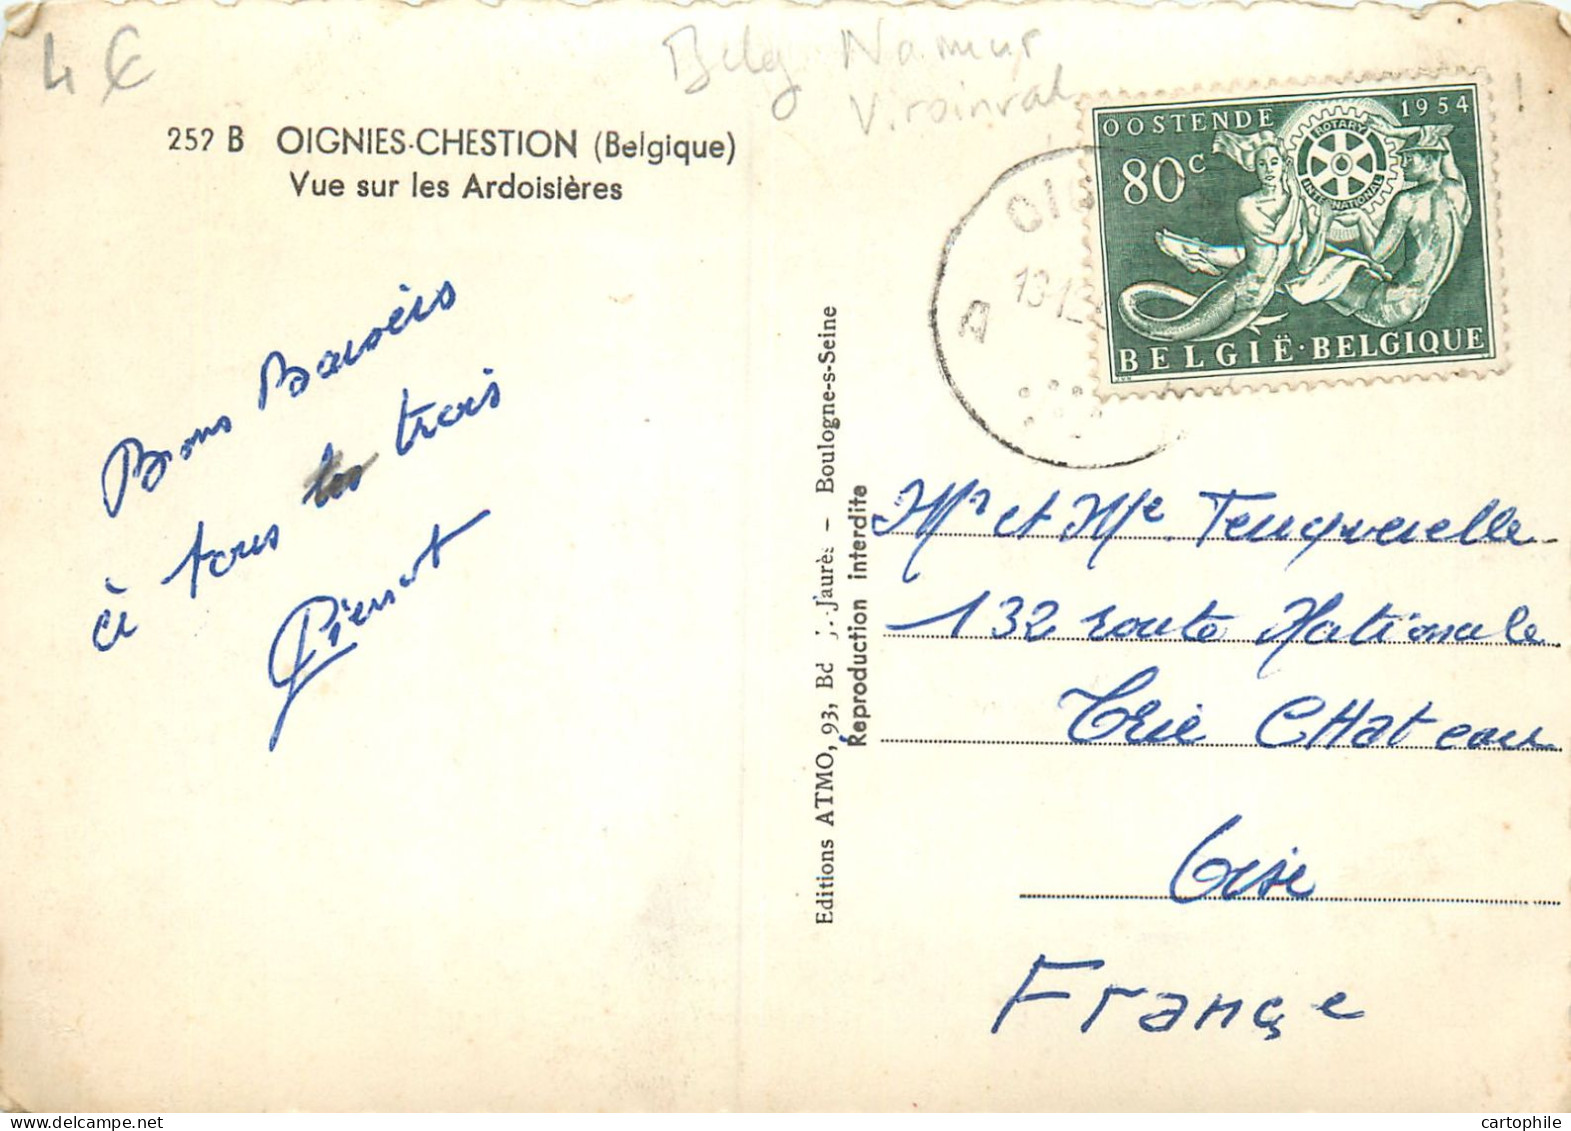 4 €
Belg Namur
Viroinval
252 B OIGNIES-CHESTION (Belgique)
Vue sur les Ardoisières
OOSTENDE 1954
80c
ROTARY
INTERNATIONAL
BELGIË·BELGIQUE
A
Bons Baisers
à tous les trois
Pierrot
Editions ATMO, 93, Bd J.-Jaurès - Boulogne-s-Seine
Reproduction interdite
Mr et Me
132 route Nationale
Trie CHateau
Oise
France